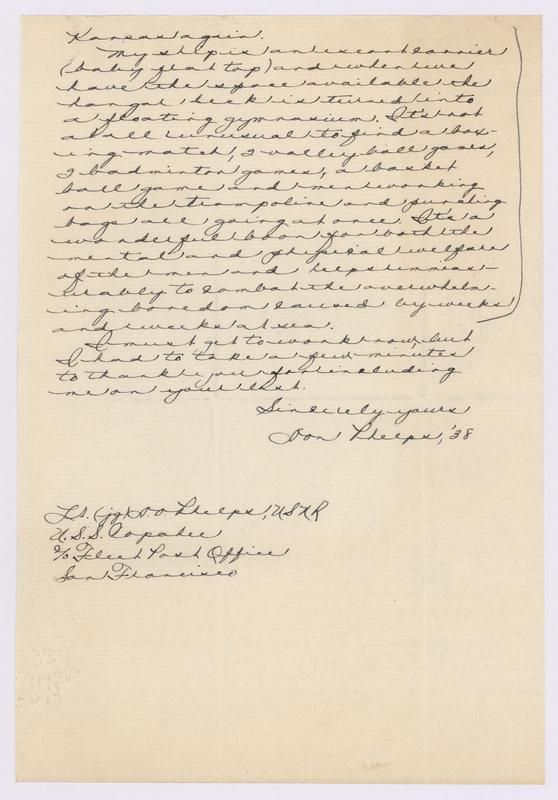 Kansas again.
My ship is an escort carrier
(baby flat top) and when we
have the space available the
hangar deck is turned into
a floating gymnasium. It's not
at all unusual to find a box-
ing match, 2 volley ball games,
2 badminton games, a basket
ball game and men working
on the trampoline and punching
bags all going at once. It's a
wonderful boon for both the
mental and physical welfare
of the men and helps immeas-
urably to combat the overwhelm-
ing boredom caused by weeks
and weeks at sea.
I must get to work now but
I had to take a few minutes
to thank you for including
me on your list.
Sincerely yours
Don Phelps, '38
Lt. (jg) D.O. Phelps, USNR
U.S.S. Copahee
c/o Fleet Post Office
San Francisco